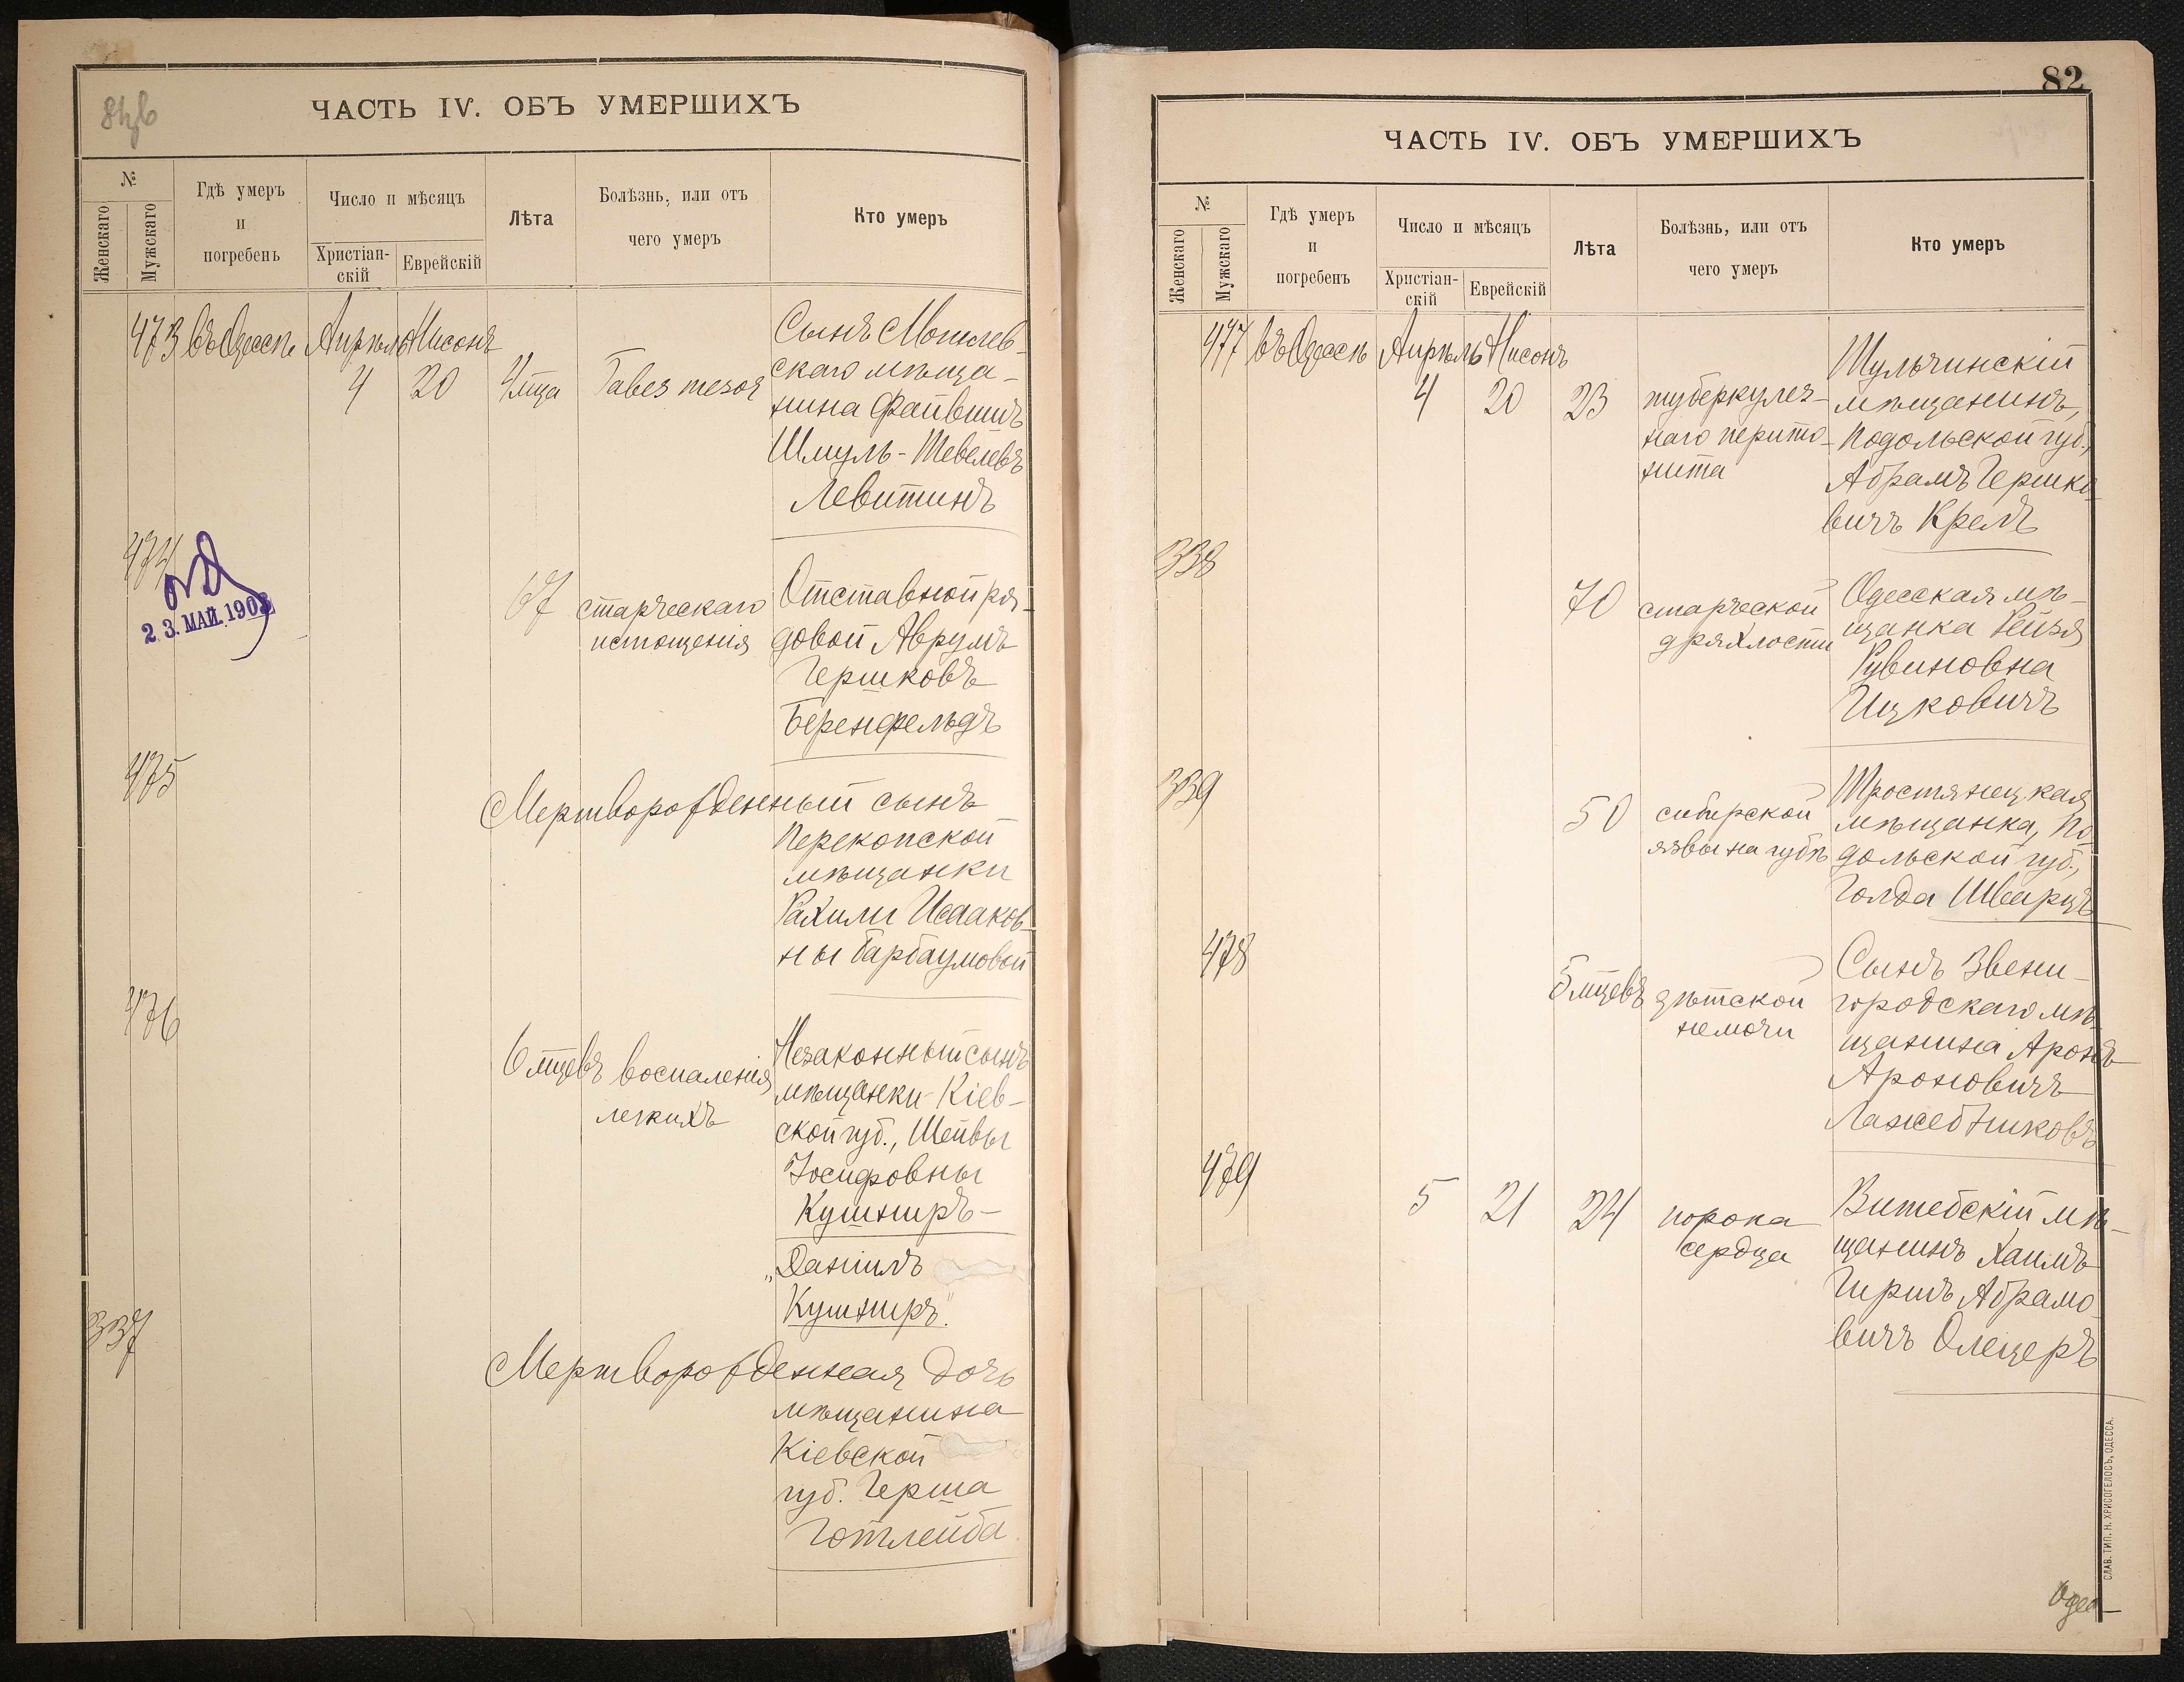 ЧАСТЬ IV. ОБЪ УМЕРШИХЪ
№
Женскаго
Мужскаго
Гдѣ умеръ
и
погребенъ
Число и мѣсяцъ
Христіан-
скій
Еврейскій
Лѣта
Болѣзнь, или отъ
чего умеръ
Кто умеръ
473 въ Одессѣ Апрѣль Нисонъ
4 20 4 мца Tabes mesor
Сынъ Могилев-
скаго мѣща-
нина Файвишъ
Шмуль-Шевелевъ
Левитинъ
474
23. МАЙ. 1902
67 старческаго
истощенія
Отставной ря-
довой Аврумъ
Гершковъ
Беренфельдъ
475
Мертворожденный сынъ
Перекопской
мѣщанки
Рахили Исааков-
ны Барбаумовой
476
6 мцевъ воспаленія
легкихъ
Незаконный сынъ
мѣщанки Кіев-
ской губ., Шейвы
Іосифовны
Кушниръ-
„Даніилъ
Кушниръ."
337
Мертворожденная дочь
мѣщанина
Кіевской
губ. Герша
Готлейба
82
ЧАСТЬ IV. ОБЪ УМЕРШИХЪ
№
Женскаго
Мужскаго
Гдѣ умеръ
и
погребенъ
Число и мѣсяцъ
Христіан-
скій
Еврейскій
Лѣта
Болѣзнь, или отъ
чего умеръ
Кто умеръ
477 въ Одессѣ Апрѣль Нисонъ
4 20 23 туберкулез-
наго перито-
нита
Тульчинскій
мѣщанинъ,
Подольской губ.,
Абрамъ Гершко-
вичъ Крелъ
338
70 старческой
дряхлости
Одесская мѣ-
щанка Рейзя
Рувиновна
Ицковичъ
339
50 сибирской
язвы на губѣ
Тростянецкая
мѣщанка, По-
дольской губ.,
Голда Шварцъ
478
5 мцевъ дѣтской
немочи
Сынъ Звени-
городскаго мѣ-
щанина Аронъ
Ароновичъ
Лажебниковъ
479
5 21 24 порока
сердца
Витебскій мѣ-
щанинъ Хаимъ
Гиршъ Абрамо-
вичъ Олецеръ
Одес-
СЛАВ. ТИП. Н. ХРИСОГЕЛОСЪ, ОДЕССА.